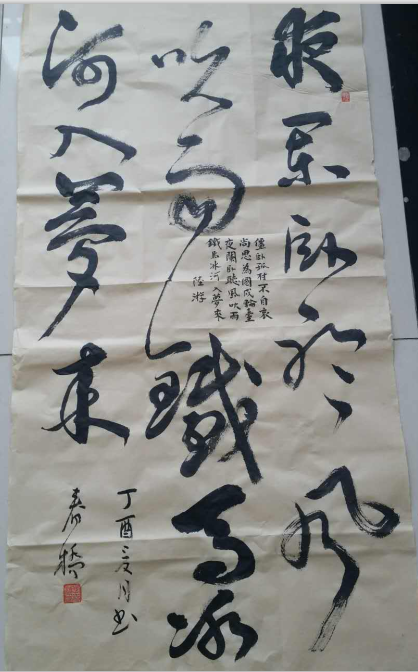 夜阑卧听风
吹雨铁马冰
河入梦来
僵卧孤村不自哀
尚思为国戍轮台
夜阑卧听风吹雨
铁马冰河入梦来
陆游
丁酉夏月书
春桥